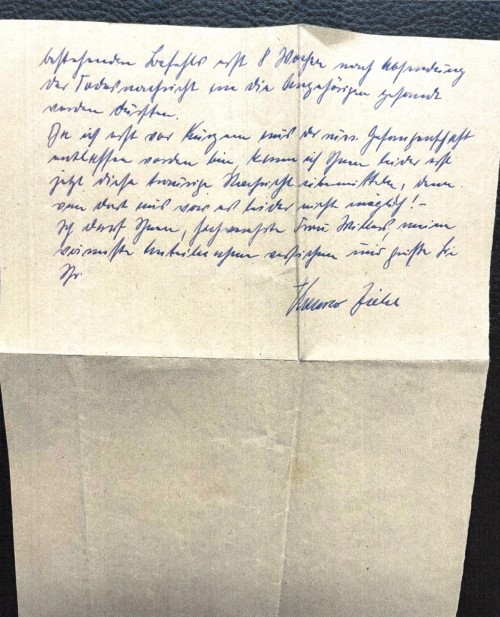 bestehenden Befehls erst 8 Wochen nach Absendung
der Todesnachricht an die Angehörigen gesandt
werden durften.
Da ich erst vor kurzem aus der russ. Gefangenschaft
entlassen worden bin kann ich Ihnen leider erst
jetzt diese traurige Nachricht übermitteln, denn
von dort aus war es leider nicht möglich! –
Ich darf Ihnen, sehr verehrte Frau Müller, meiner
wärmsten Anteilnahme versichern und grüße Sie
Ihr